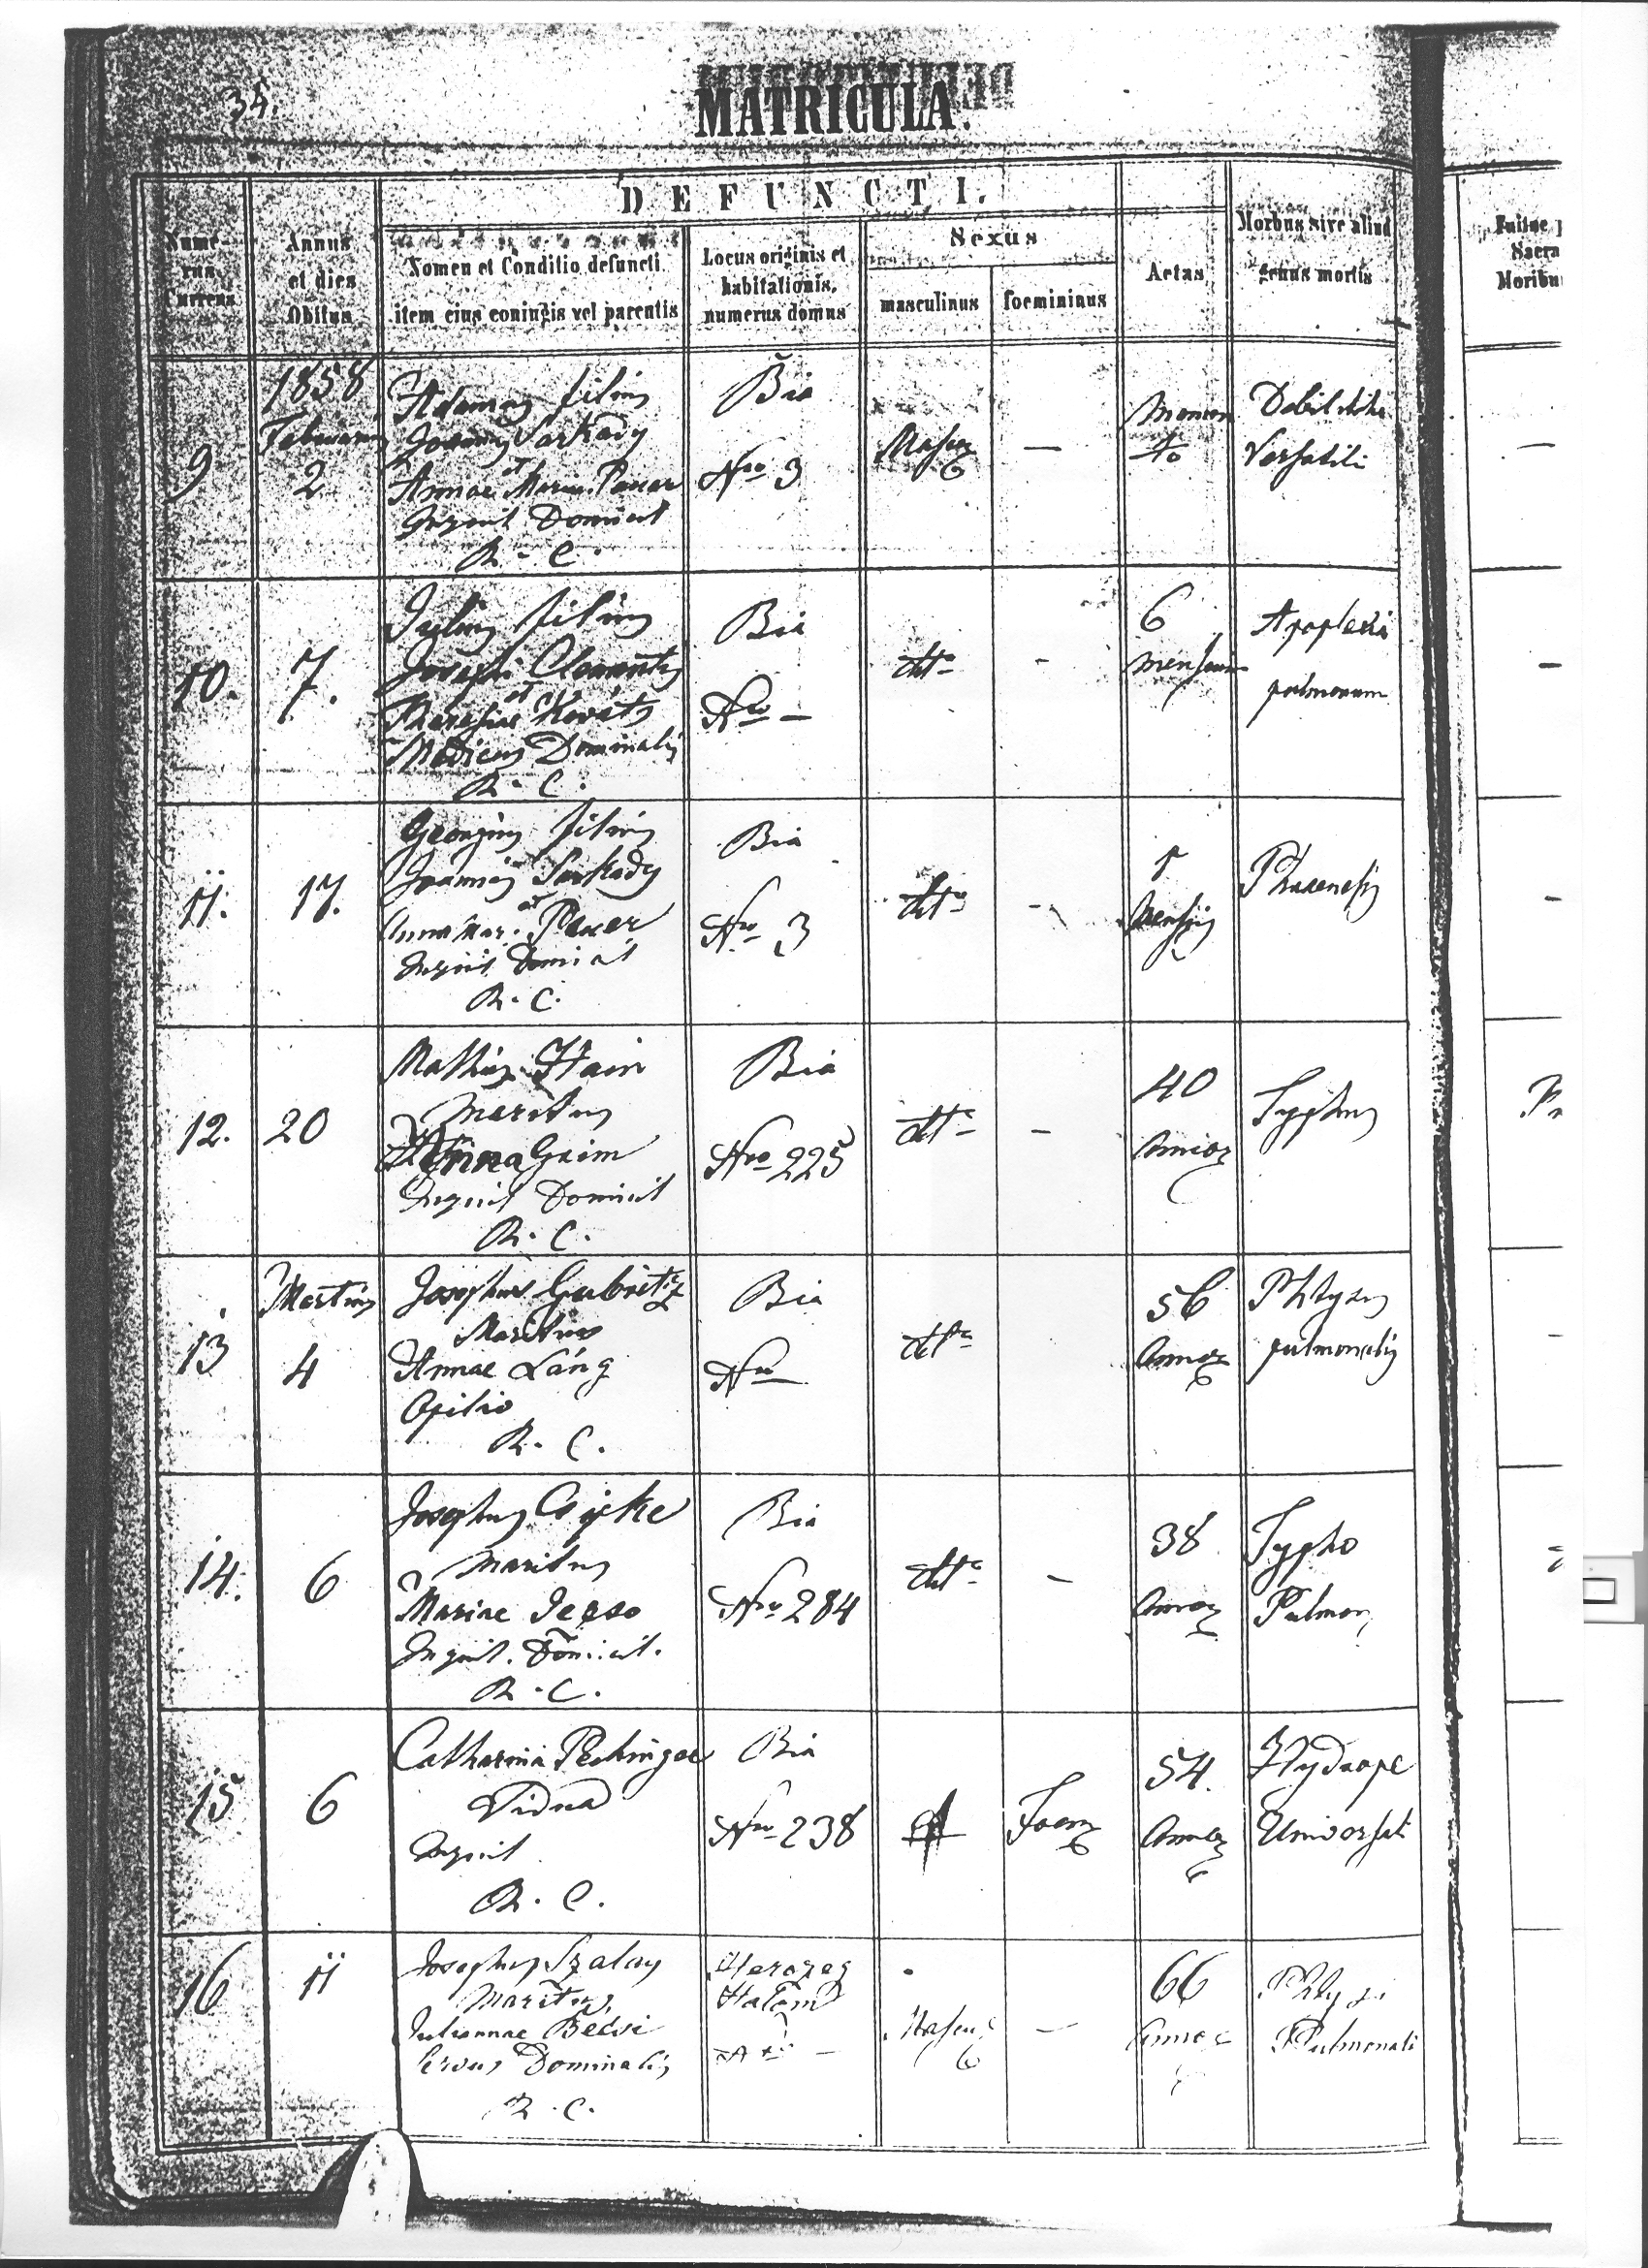 34.
MATRICULA.
DEFUNCTI.
Numerus Currens
Annus et dies Obitus
Nomen et Conditio defuncti
item eius coniugis vel parentis
Locus originis et
habitationis,
numerus domus
Sexus
masculinus
foemininus
Aetas
Morbus sive aliud
genus mortis
9
1858
Februarius
2
Adamus filius
Joannis Sarkady
et
Annae Mariae Pauer
Inquil Domicil
R. C.
Bia
Nro 3
Mascu
—
Momen
to
Debilitate
10.
7.
Julius filius
Josephi Clementis
et
Theresiae Kováts
Medicus Dominalis
R. C.
Bia
Nro —
dtto
-
6
mensium
Apoplexia
pulmonum
11.
17.
Georgius filius
Joannis Sarkady
et
Anna Mar. Pauer
Inquil Domicil
R. C.
Bia
Nro 3
dtto
-
1
Mensis
12.
20
Mathias Hain
maritus
Anna Grim
Inquil Domicil
R. C.
Bia
Nro 225
dtto
—
40
Annor
Typhus
13
Martius
4
Josephus
Maritus
Annae Láng
Opilio
R. C.
Bia
Nro
dtto
56
Annor
Phtysis
pulmonalis
14.
6
Josephus
Maritus
Mariae
Inquil. Domicil.
R. C.
Bia
Nro 284
dtto
—
38
Annor
Typho
Pulmon
15
6
Catharina
Vidua
Inquil
R. C.
Bia
Nro 238
Foem
54.
Annor
Hydrope
Universali
16
11
Josephus Szalay
Maritus
Juliannae Becsi
Servus Dominalis
R. C.
Herczeg
Halom
Nro —
Mascu
—
66
Annor
Phtysi
Pulmonali